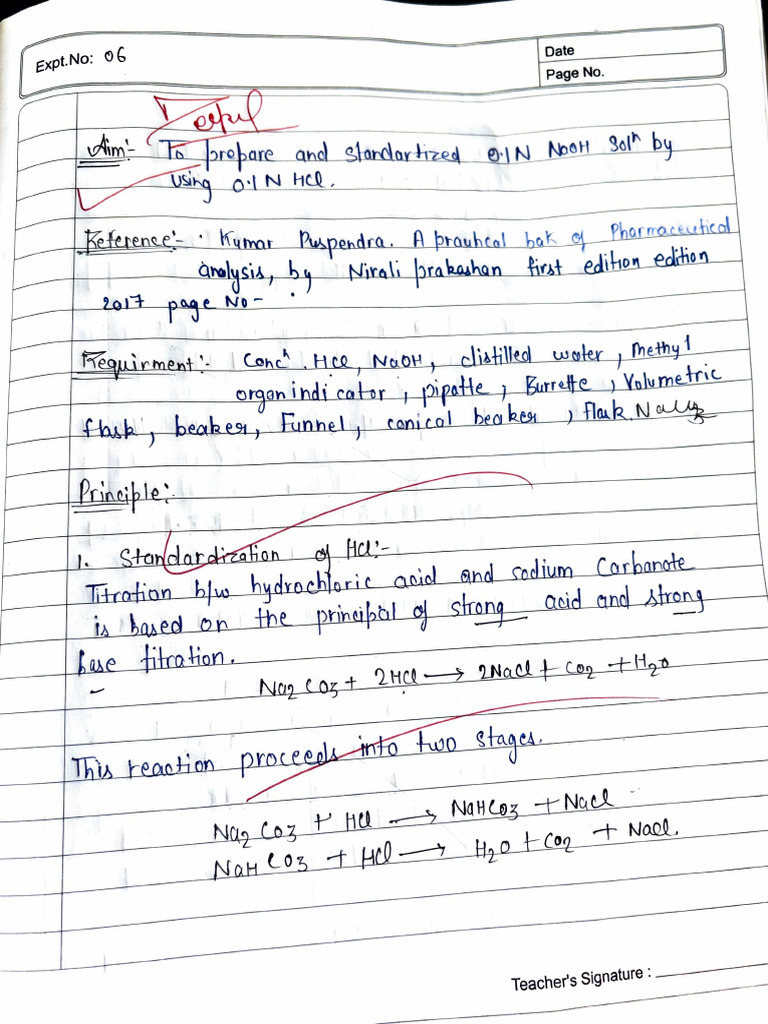 Expt.No: 06
Date
Page No.
Aim:- To prepare and standartized 0.1N NaOH Solⁿ by
using 0.1N HCl.
Reference:- Kumar Puspendra. A prauhcal bak of Pharmaceutical
analysis, by Nirali prakashan first edition edition
2017 page No-
Requirment:- Concⁿ. HCl, NaOH, distilled water, Methyl
organ indicator, pipatte, Burrette, Volumetric
flask, beaker, Funnel, conical beaker, flask.
Principle:-
1. Standardization of HCl:-
Titration b/w hydrochloric acid and sodium Carbanote
is based on the principal of strong acid and strong
base titration.
Na2CO3 + 2HCl → 2NaCl + CO2 + H2O
This reaction proceeds into two stages.
Na2CO3 + HCl → NaHCO3 + NaCl
NaHCO3 + HCl → H2O + CO2 + NaCl.
Teacher's Signature :